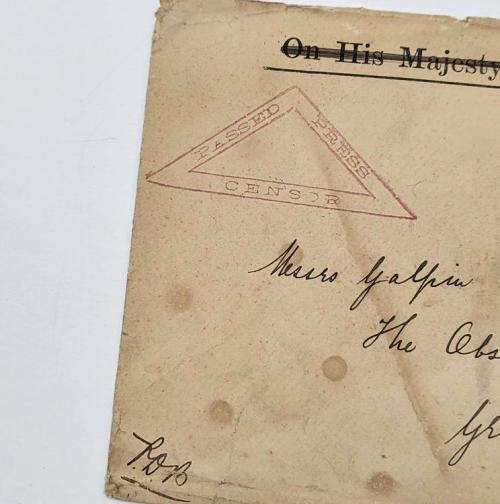 On His Majesty
PASSED PRESS
CENSOR
Messrs Galpin
The Obs
Gr